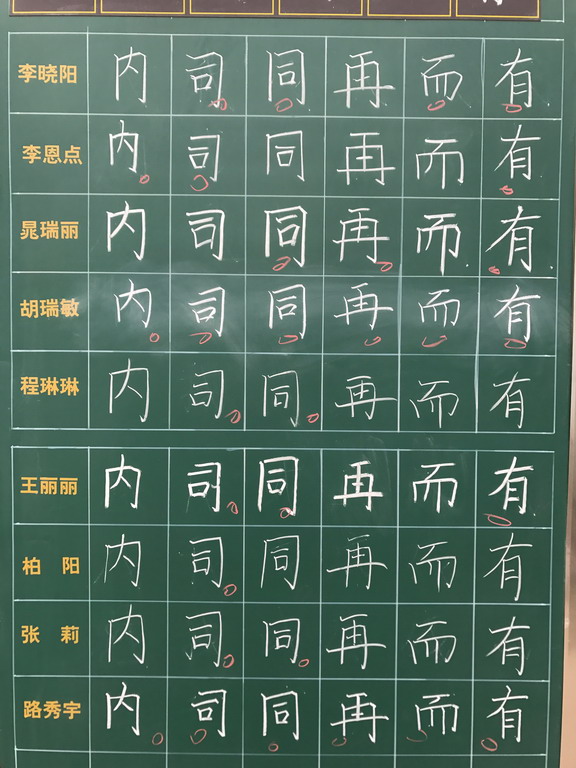 李晓阳 内 司 同 再 而 有
李恩点 内 司 同 再 而 有
晁瑞丽 内 司 同 再 而 有
胡瑞敏 内 司 同 再 而 有
程琳琳 内 司 同 再 而 有
王丽丽 内 司 同 再 而 有
柏阳 内 司 同 再 而 有
张莉 内 司 同 再 而 有
路秀宇 内 司 同 再 而 有